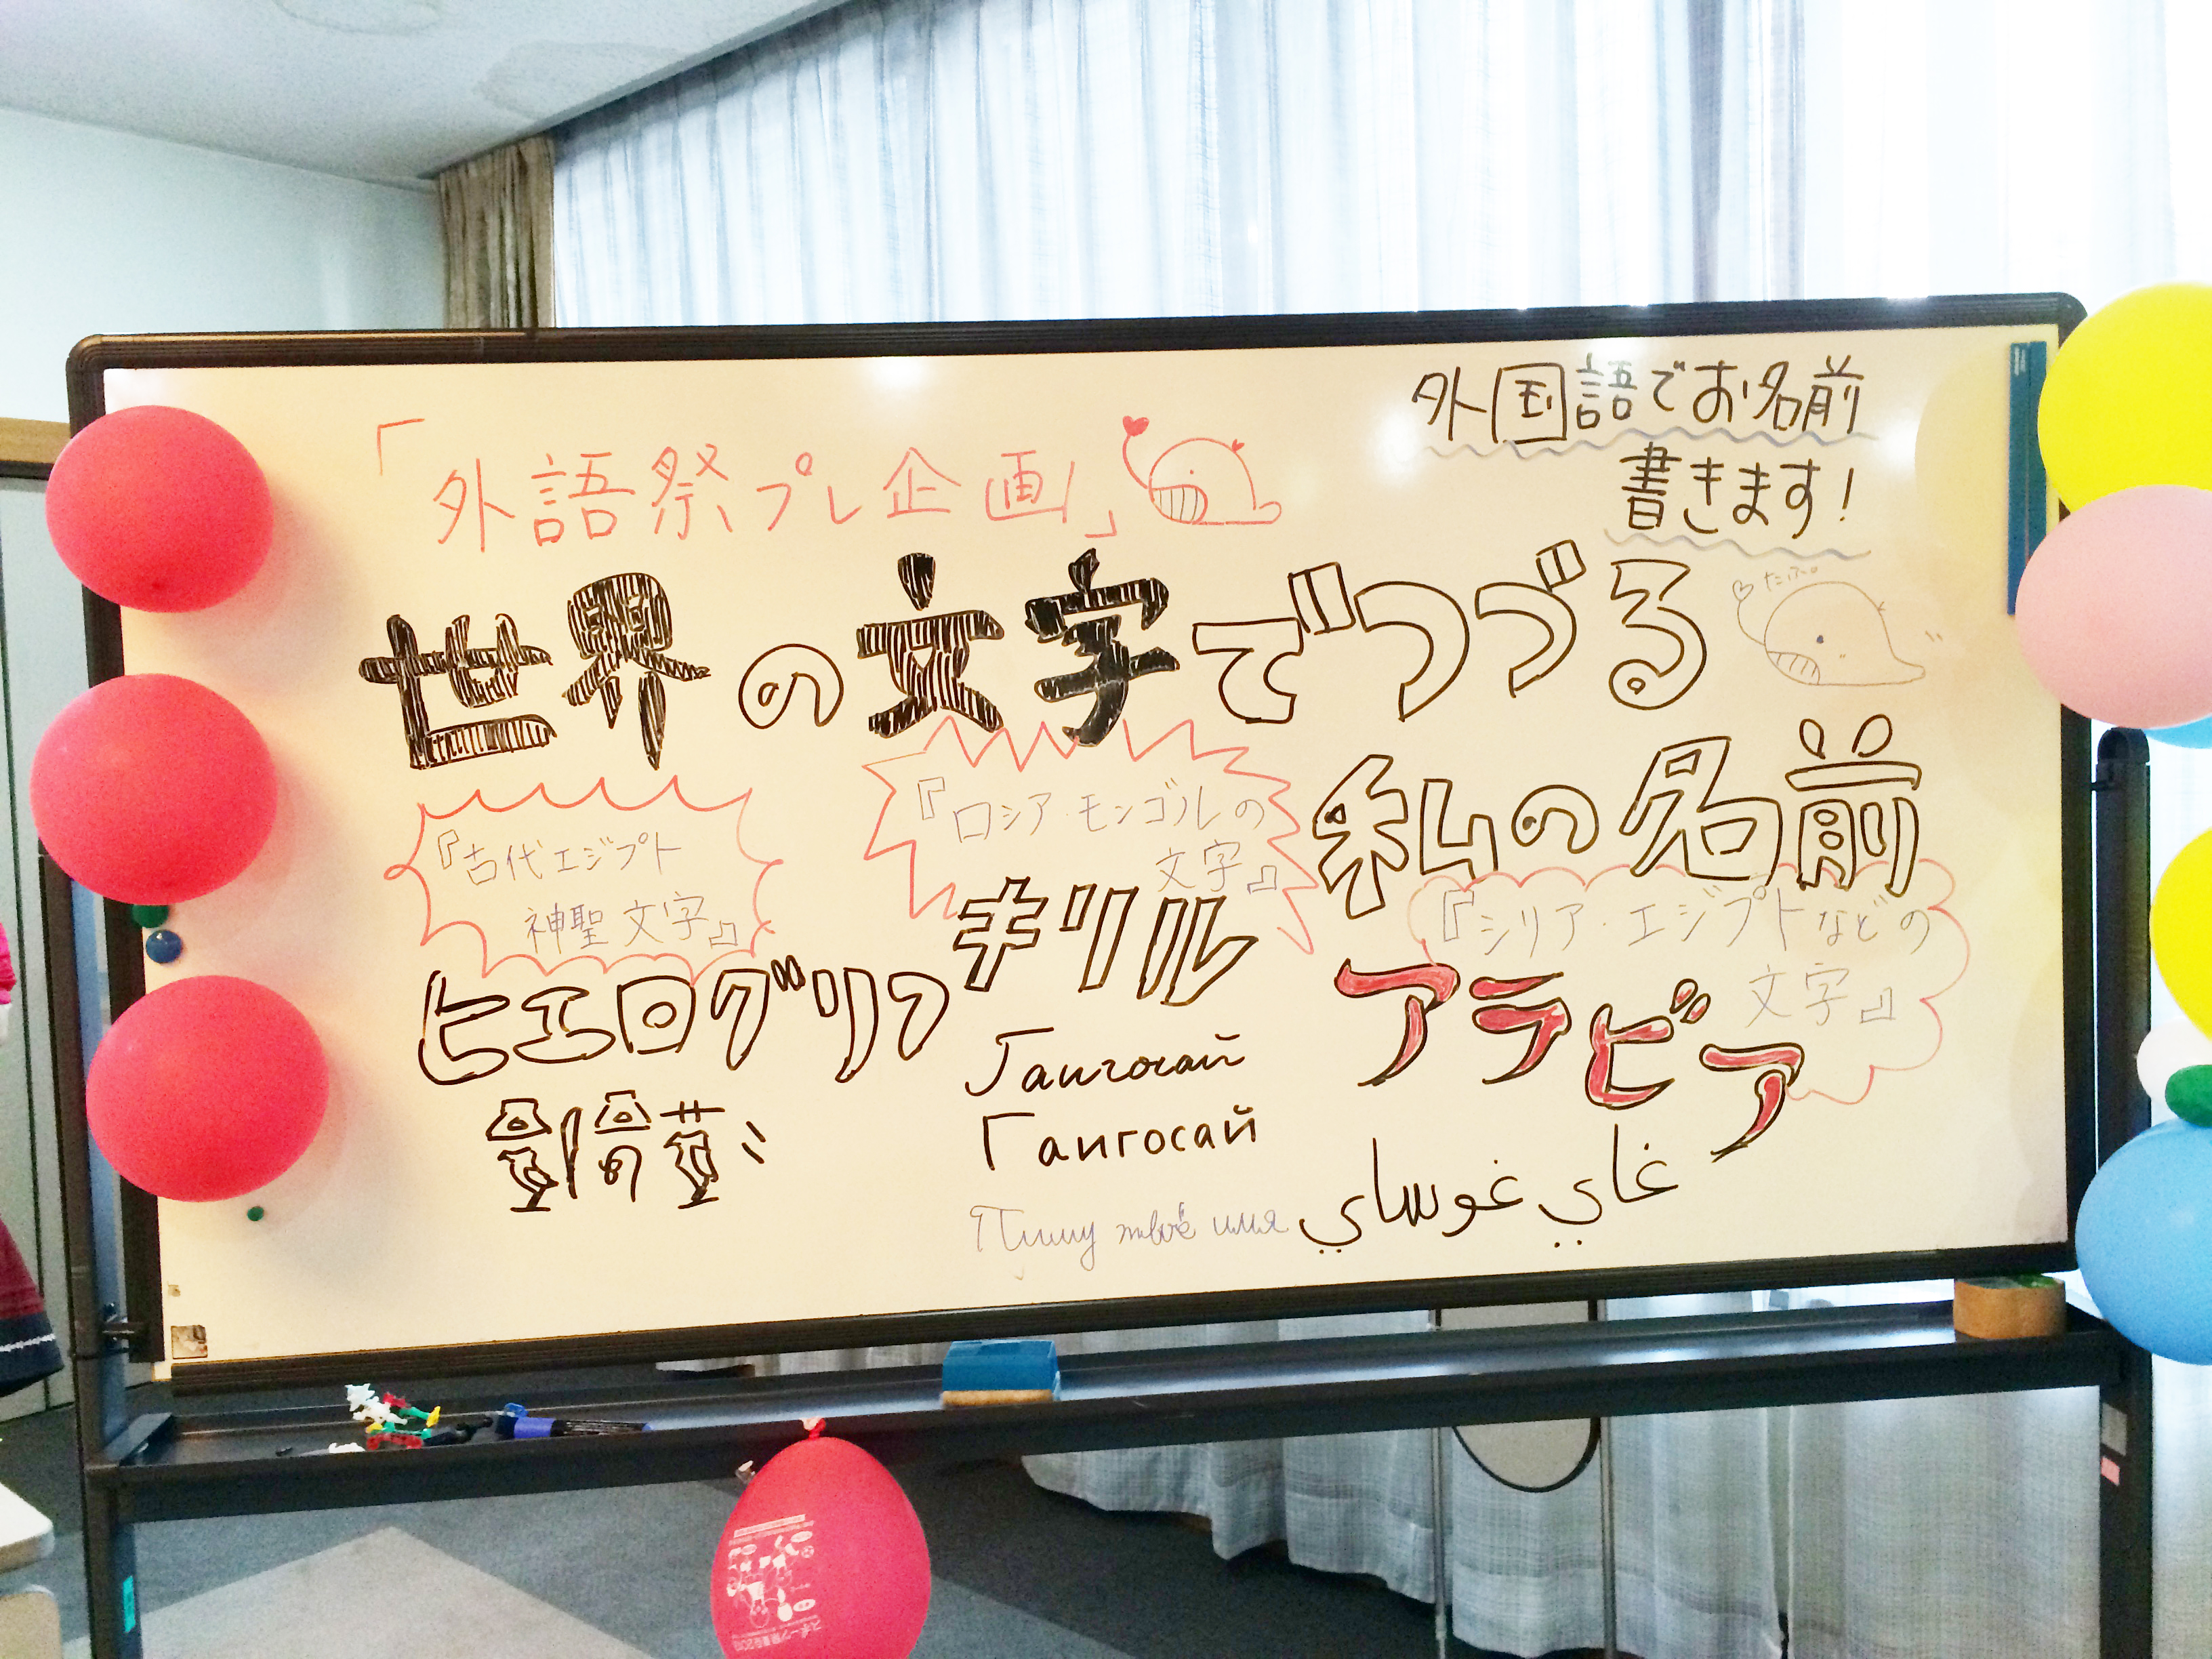 外国語でお名前
書きます！
「外語祭プレ企画」
世界の文字でつづる
たぷ。
私の名前
『古代エジプト
神聖文字』
ヒエログリフ
『ロシア・モンゴルの
文字』
キリル
Гаигосай
Гаигосай
Пишу твоё имя
『シリア・エジプトなどの
文字』
アラビア
غاي غوساي